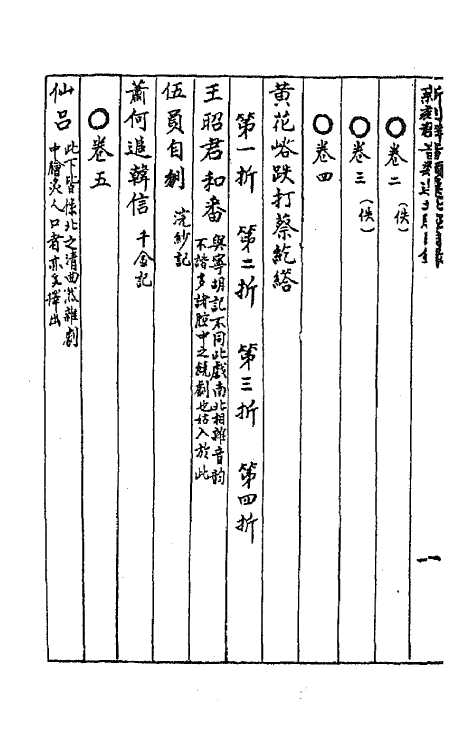 新刻群音類選北腔目錄
○卷二（佚）
○卷三（佚）
○卷四
黄花峪跌打蔡䊠𦂶
第一折　第二折　第三折　第四折
王昭君和番
與寧胡記不同此戲南北相雜音韵
不諧多諸腔中之統劇也姑入於此
伍員自刎　浣紗記
蕭何追韓信　千金記
○卷五
仙呂
此下皆係北之清曲然雜劇
中膾炙人口者亦多擇出
一